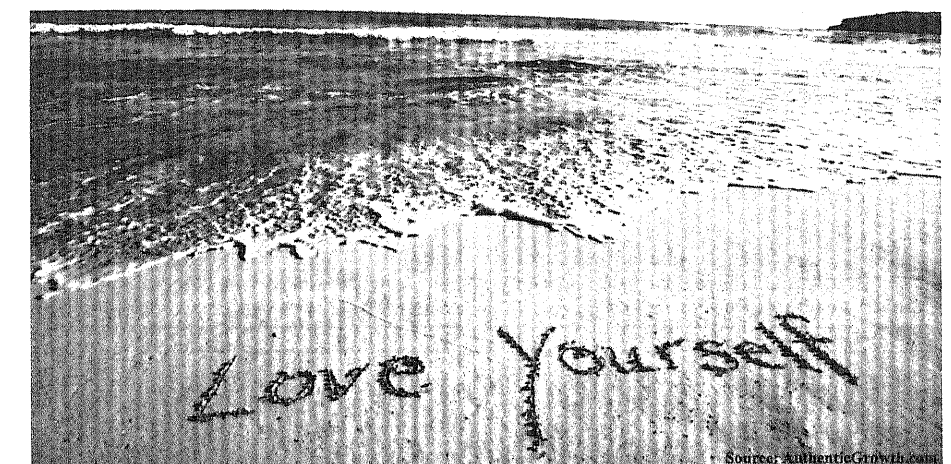 Love Yourself
Source: AuthenticGrowth.com